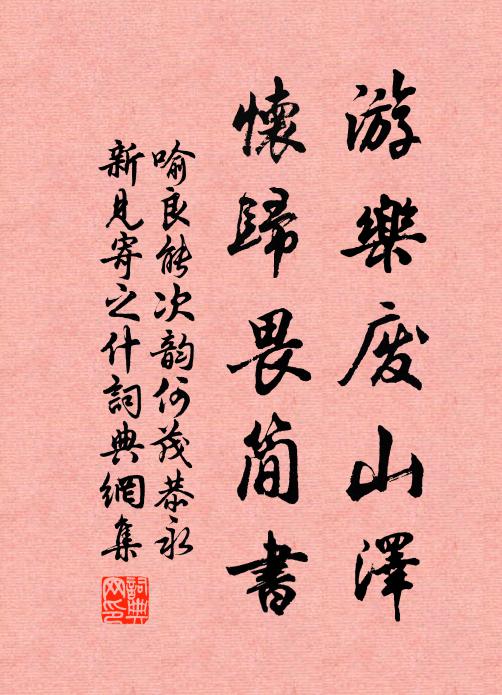 游樂废山澤
懷歸畏簡書
喻良能次韵何茂恭永
新見寄之什詞典網集
詞典网印